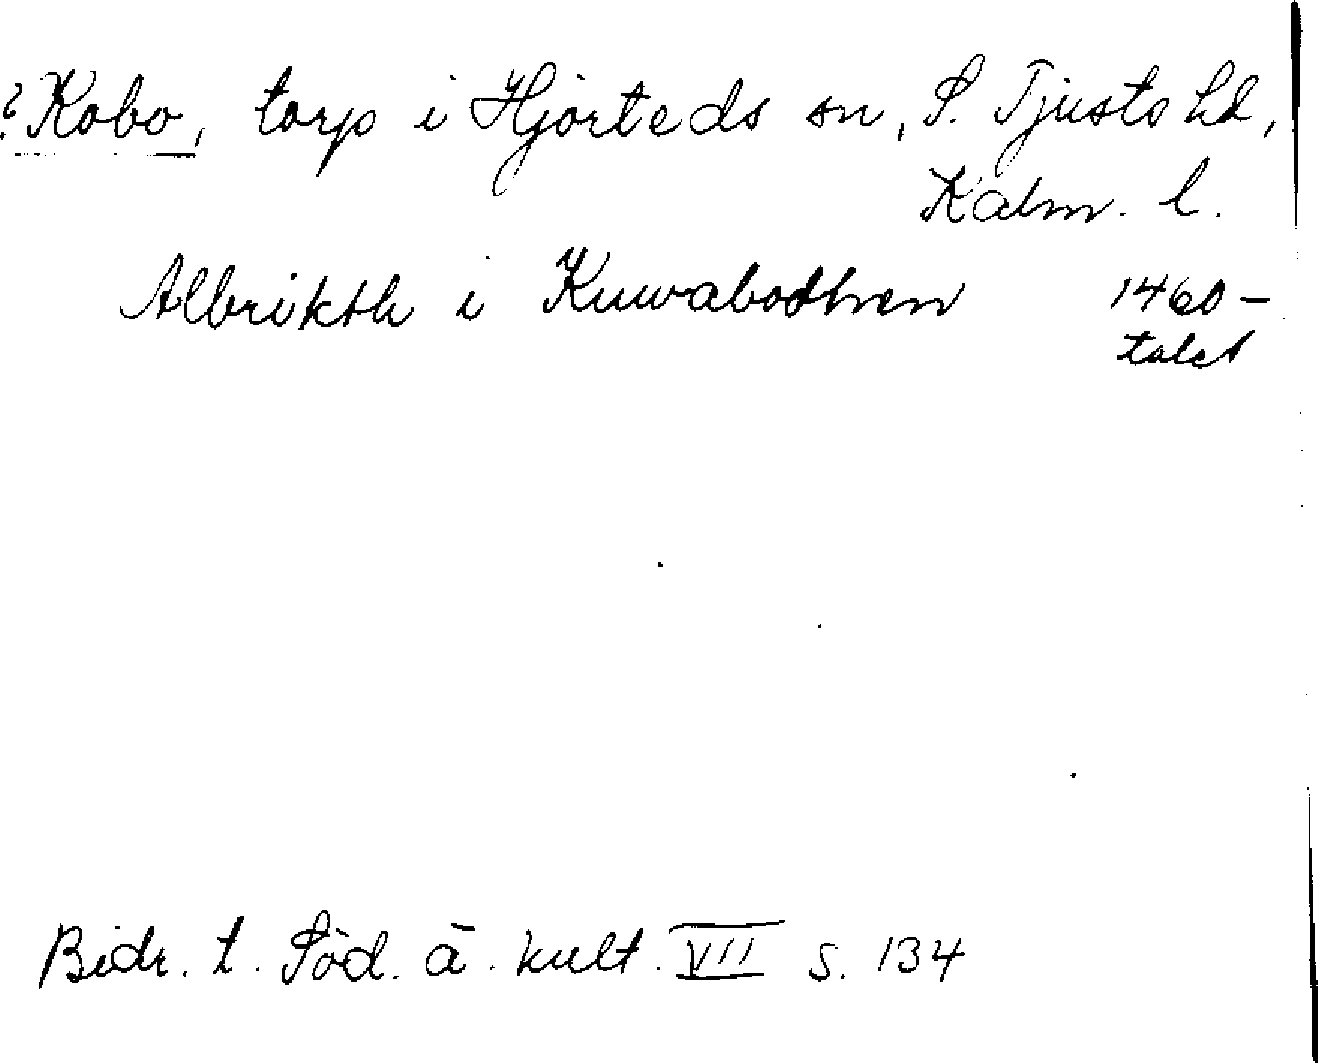 ? Kobo, torp i Hjorteds sn, S. Tjusts hd,
Kalm. l.
Albrikth i Kuwabodhen 1460-
talet
Bidr. t. Söd. ä. kult. VII s. 134